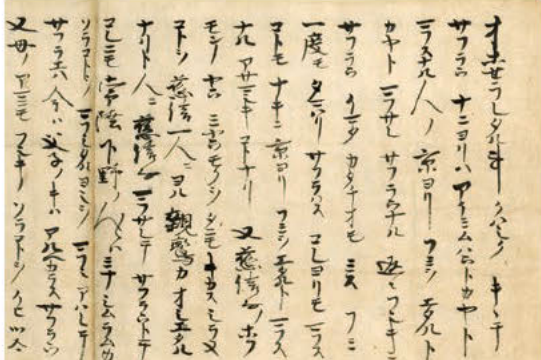 オホセラレタル事クハシクキヽテ
サフラウナニヨリハアイミムハウトカヤト
マフスナル人ノ京ヨリフミヲエタルト
カヤトマフサレサフラウナル返々フシキニ
サフラウイマタカタチオモミスフミ
一度モタマハリサフラハスコレヨリモマフス
コトモナキニ京ヨリフミヲエタルトマフス
ナルアサマシキコトナリ又慈信房ノホフ
モンノヤウミヤウモクヲタニモキカスシラヌ
コトヲ慈信一人ニヨル親鸞カオシエタル
ナリト人ニ慈信房マフサレテサフラウトテ
コレニモ常陸下野ノ人々ハミナシムラムカ
ソラコトヲマフシタルヨシヲマフシアハレテ
サフラエハ今ハ父子ノキハアルヘカラスサフラウ
又母ノアマニモフシキノソラコトヲイヒツケ